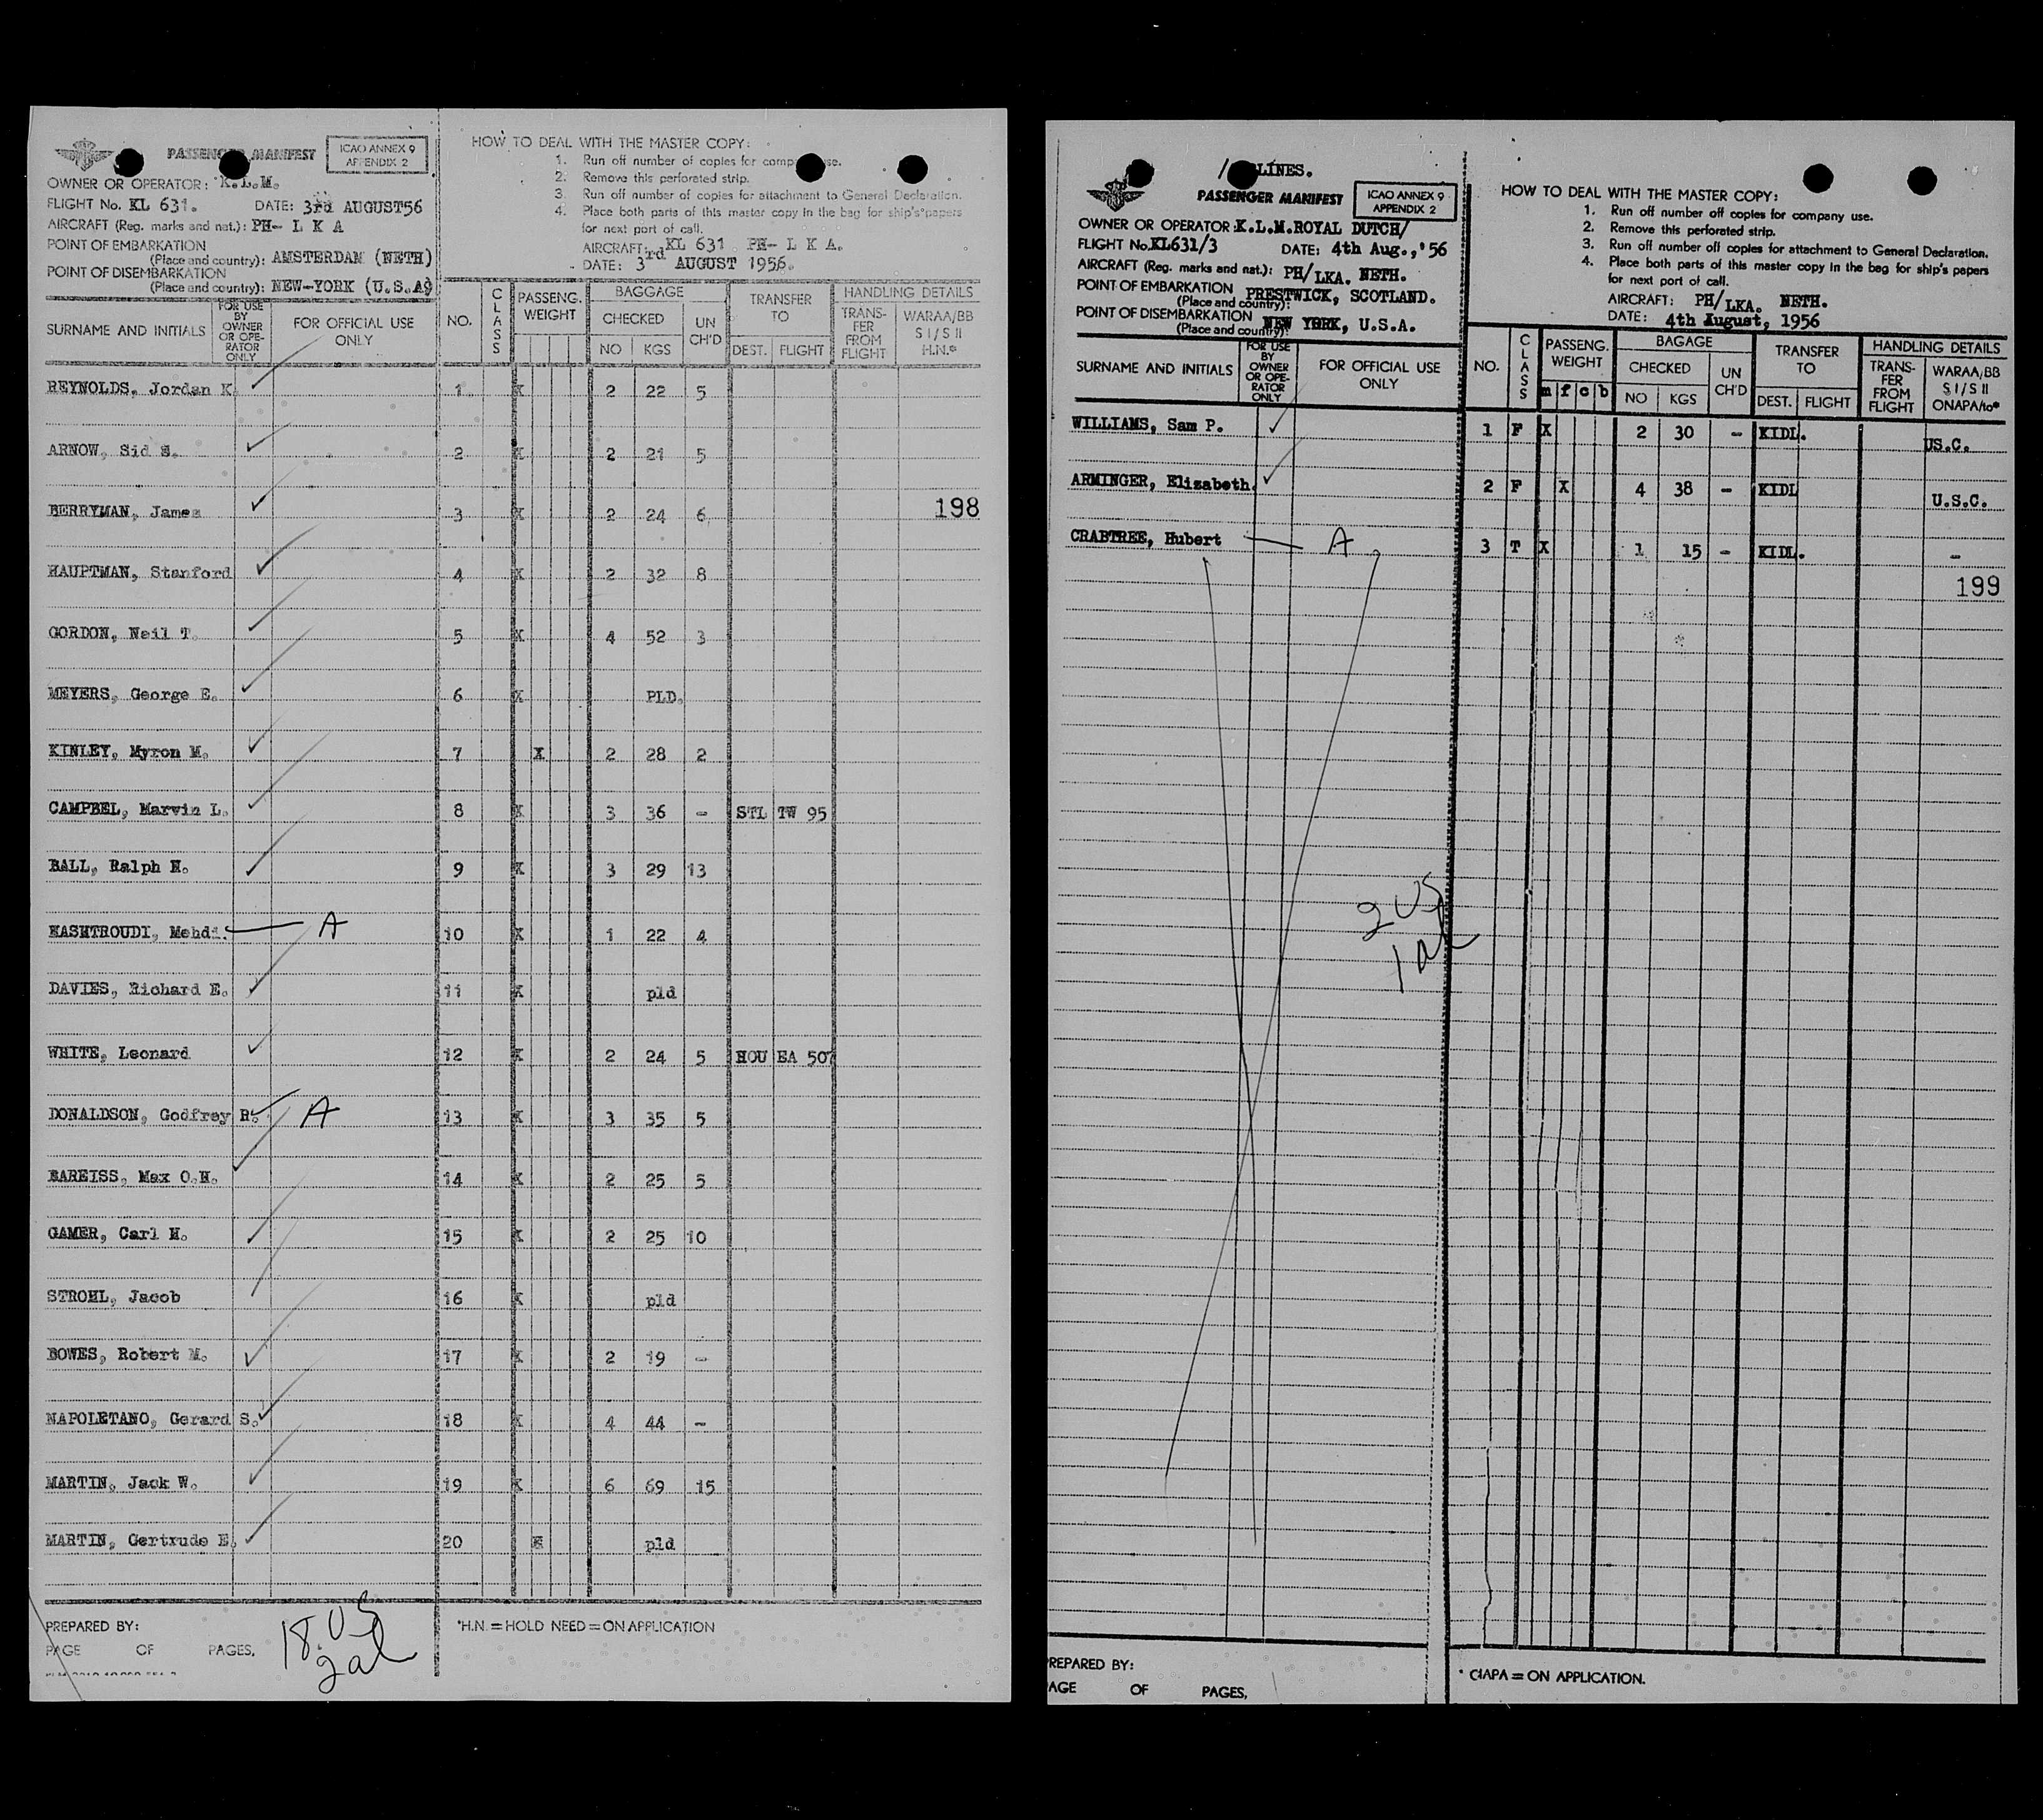 PASSENGER MANIFEST
ICAO ANNEX 9
APPENDIX 2
OWNER OR OPERATOR: K.L.M.
FLIGHT No. KL 631. DATE: 3rd AUGUST56
AIRCRAFT (Reg. marks and nat.): PH- L K A
POINT OF EMBARKATION
(Place and country): AMSTERDAM (NETH)
POINT OF DISEMBARKATION
(Place and country): NEW-YORK (U.S.A)
HOW TO DEAL WITH THE MASTER COPY:
1. Run off number of copies for use.
2. Remove this perforated strip.
3. Run off number of copies for attachment to General Declaration.
4. Place both parts of this master copy in the bag for ship's papers
for next port of call.
AIRCRAFT: KL 631 PH- L K A.
DATE: 3rd AUGUST 1956.
SURNAME AND INITIALS FOR USE BY OWNER OR OPE- RATOR ONLY FOR OFFICIAL USE ONLY NO. CLASS PASSENG. WEIGHT BAGGAGE CHECKED NO KGS UN CH'D TRANSFER TO DEST. FLIGHT HANDLING DETAILS TRANS- FER FROM FLIGHT WARAA/BB S I/S II H.N.*
REYNOLDS, Jordan K. 1 X 2 22 5
ARNOW, Sid S. 2 X 2 21 5
BERRYMAN, James 3 X 2 24 6 198
HAUPTMAN, Stanford 4 X 2 32 8
GORDON, Neil T. 5 X 4 52 3
MEYERS, George E. 6 X PLD.
KINLEY, Myron M. 7 X 2 28 2
CAMPBEL, Marvin L. 8 X 3 36 - STL TW 95
BALL, Ralph N. 9 X 3 29 13
HASHTROUDI, Mehdi. A 10 X 1 22 4
DAVIES, Richard E. 11 X pld
WHITE, Leonard 12 X 2 24 5 HOU EA 507
DONALDSON, Godfrey R. A 13 X 3 35 5
BAREISS, Max O.H. 14 X 2 25 5
GAMER, Carl H. 15 X 2 25 10
STROHL, Jacob 16 X pld
BOWES, Robert M. 17 X 2 19 -
NAPOLETANO, Gerard S. 18 X 4 44 -
MARTIN, Jack W. 19 X 6 69 15
MARTIN, Gertrude E. 20 X pld
PREPARED BY:
PAGE OF PAGES.
18 US
2 al
*H.N. = HOLD NEED = ON APPLICATION
LINES.
PASSENGER MANIFEST
ICAO ANNEX 9
APPENDIX 2
OWNER OR OPERATOR: K.L.M. ROYAL DUTCH/
FLIGHT No. KL631/3 DATE: 4th Aug.,'56
AIRCRAFT (Reg. marks and nat.): PH/LKA. NETH.
POINT OF EMBARKATION
(Place and country): PRESTWICK, SCOTLAND.
POINT OF DISEMBARKATION
(Place and country): NEW YORK, U.S.A.
HOW TO DEAL WITH THE MASTER COPY:
1. Run off number off copies for company use.
2. Remove this perforated strip.
3. Run off number off copies for attachment to General Declaration.
4. Place both parts of this master copy in the bag for ship's papers
for next port of call.
AIRCRAFT: PH/LKA. NETH.
DATE: 4th August, 1956
SURNAME AND INITIALS FOR USE BY OWNER OR OPE- RATOR ONLY FOR OFFICIAL USE ONLY NO. CLASS PASSENG. WEIGHT m f c b BAGAGE CHECKED NO KGS UN CH'D TRANSFER TO DEST. FLIGHT HANDLING DETAILS TRANS- FER FROM FLIGHT WARAA/BB S I/S II ONAPA/to*
WILLIAMS, Sam P. 1 F X 2 30 - KIDL. US.C.
ARMINGER, Elizabeth. 2 F X 4 38 - KIDL U.S.C.
CRABTREE, Hubert A 3 T X 1 15 - KIDL. -
199
2 US
1 al
REPARED BY:
AGE OF PAGES.
* OAPA = ON APPLICATION.